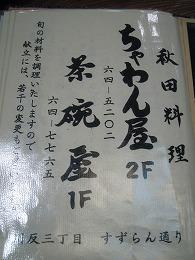 秋田料理
ちゃわん屋 2F
六四－五二〇二
茶碗屋 1F
六四－七七六五
旬の材料を調理いたしますので
献立には、若干の変更も
反三丁目 すずらん通り